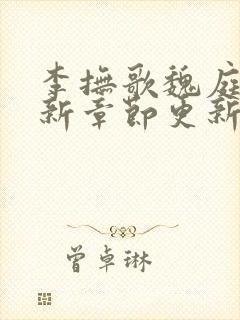 李撫歌魏庭
新章節更新
曾卓琳